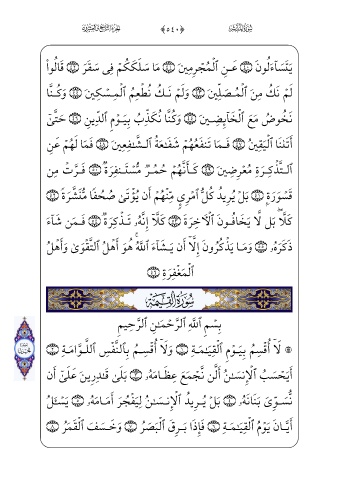 سورة المدثر ﴿٥٤٠﴾ الجزء التاسع والعشرون
يَتَسَآءَلُونَ ۝٤٠ عَنِ ٱلۡمُجۡرِمِينَ ۝٤١ مَا سَلَكَكُمۡ فِى سَقَرَ ۝٤٢ قَالُوا۟
لَمۡ نَكُ مِنَ ٱلۡمُصَلِّينَ ۝٤٣ وَلَمۡ نَكُ نُطۡعِمُ ٱلۡمِسۡكِينَ ۝٤٤ وَكُنَّا
نَخُوضُ مَعَ ٱلۡخَآئِضِينَ ۝٤٥ وَكُنَّا نُكَذِّبُ بِيَوۡمِ ٱلدِّينِ ۝٤٦ حَتَّىٰٓ
أَتَىٰنَا ٱلۡيَقِينُ ۝٤٧ فَمَا تَنفَعُهُمۡ شَفَٰعَةُ ٱلشَّٰفِعِينَ ۝٤٨ فَمَا لَهُمۡ عَنِ
ٱلتَّذۡكِرَةِ مُعۡرِضِينَ ۝٤٩ كَأَنَّهُمۡ حُمُرٌ مُّسۡتَنفِرَةٌ ۝٥٠ فَرَّتۡ مِن
قَسۡوَرَةِۭ ۝٥١ بَلۡ يُرِيدُ كُلُّ ٱمۡرِئٍ مِّنۡهُمۡ أَن يُؤۡتَىٰ صُحُفًا مُّنَشَّرَةً ۝٥٢
كَلَّا ۖ بَل لَّا يَخَافُونَ ٱلۡأَخِرَةَ ۝٥٣ كَلَّآ إِنَّهُۥ تَذۡكِرَةٌ ۝٥٤ فَمَن شَآءَ
ذَكَرَهُۥ ۝٥٥ وَمَا يَذۡكُرُونَ إِلَّآ أَن يَشَآءَ ٱللَّهُ ۚ هُوَ أَهۡلُ ٱلتَّقۡوَىٰ وَأَهۡلُ
ٱلۡمَغۡفِرَةِ ۝٥٦
سُورَةُ ٱلۡقِيَٰمَةِ
بِسۡمِ ٱللَّهِ ٱلرَّحۡمَٰنِ ٱلرَّحِيمِ
۞ لَآ أُقۡسِمُ بِيَوۡمِ ٱلۡقِيَٰمَةِ ۝١ وَلَآ أُقۡسِمُ بِٱلنَّفۡسِ ٱللَّوَّامَةِ ۝٢
أَيَحۡسَبُ ٱلۡإِنسَٰنُ أَلَّن نَّجۡمَعَ عِظَامَهُۥ ۝٣ بَلَىٰ قَٰدِرِينَ عَلَىٰٓ أَن
نُّسَوِّىَ بَنَانَهُۥ ۝٤ بَلۡ يُرِيدُ ٱلۡإِنسَٰنُ لِيَفۡجُرَ أَمَامَهُۥ ۝٥ يَسۡـَٔلُ
أَيَّانَ يَوۡمُ ٱلۡقِيَٰمَةِ ۝٦ فَإِذَا بَرِقَ ٱلۡبَصَرُ ۝٧ وَخَسَفَ ٱلۡقَمَرُ ۝٨